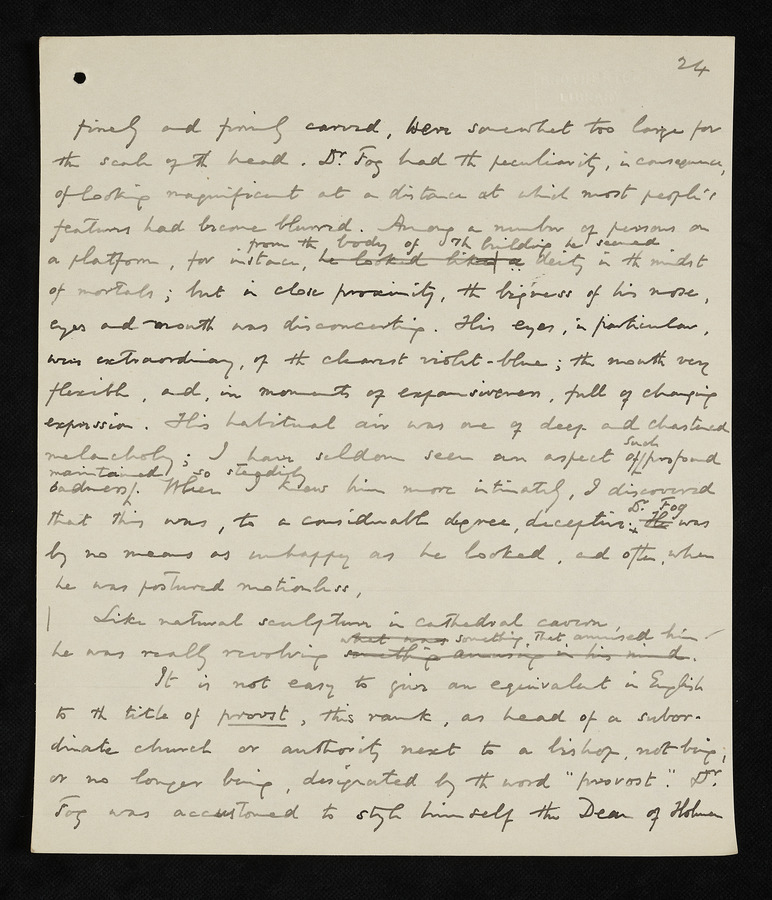 24
finely and firmly carved, were somewhat too large for
the scale of the head. Dr. Fog had the peculiarity, in consequence,
of looking magnificent at a distance at which most people's
features had become blurred. Among a number of persons on
from the body of the building he seemed
a platform, for instance, he looked like a deity in the midst
of mortals; but in close proximity, the bigness of his nose,
eyes and mouth was disconcerting. His eyes, in particular,
were extraordinary, of the clearest violet-blue; the mouth very
flexible, and, in moments of expansiveness, full of changing
expression. His habitual air was one of deep and chastened
such
melancholy; I have seldom seen an aspect of profound
maintained so steadily
sadness. When I knew him more intimately, I discovered
Dr. Fog
that this was, to a considerable degree, deceptive: He was
by no means as unhappy as he looked, and often, when
he was postured motionless,
Like natural sculpture in cathedral cavern,
what was something that amused him
he was really revolving something amusing in his mind.
It is not easy to give an equivalent in English
to the title of provst, this rank, as head of a subor-
dinate church or authority next to a bishop, not being,
or no longer being, designated by the word "provost". Dr.
Fog was accustomed to style himself the Dean of